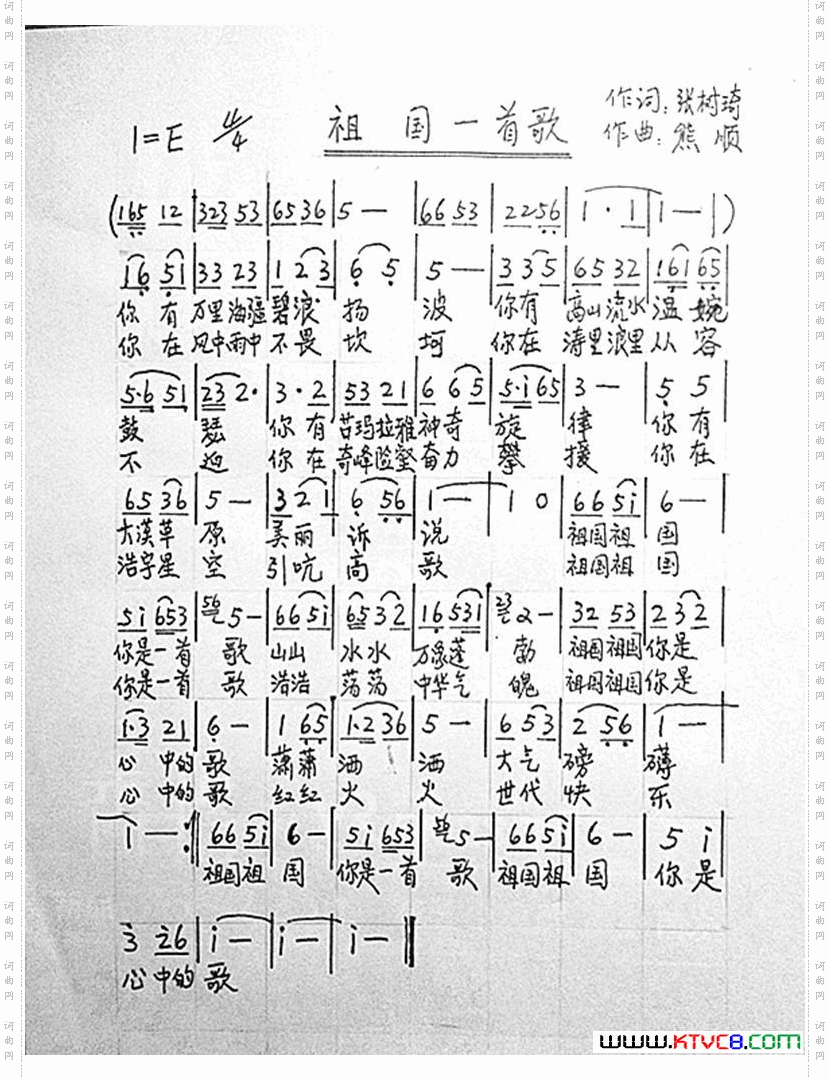 1=E 4/4 祖国一首歌 作词:张树琦
作曲:熊顺
(165 12 | 323 53 | 6536 | 5 — | 66 53 | 2256 | 1 · 1 | 1 — | )
16 51 | 33 23 | 1 23 | 6 5 | 5 — | 3 35 | 65 32 | 161 65
你 有 万里海疆 碧浪 扬 波 你有 高山流水 温婉
你 在 风中雨中 不畏 坎 坷 你在 涛里浪里 从容
5·6 51 | 23 2· | 3 · 2 | 53 21 | 6 65 | 5·i 65 | 3 — | 5 5
鼓 瑟 你 有 苔玛拉雅 神奇 旋 律 你 有
不 迫 你 在 奇峰险壑 奋力 攀 援 你 在
65 36 | 5 — | 3 21 | 6 56 | 1 — | 1 0 | 66 5i | 6 —
大漠草 原 美丽 诉 说 祖国祖 国
浩宇星 空 引吭 高 歌 祖国祖 国
5i 653 | 56 5 — | 66 5i | 65 32 | 16 531 | 23 2 — | 32 53 | 2 32
你是一首 歌 山山 水水 万象蓬 勃 祖国祖国 你是
你是一首 歌 浩浩 荡荡 中华气 魄 祖国祖国 你是
1·3 21 | 6 — | 1 65 | 1·2 36 | 5 — | 6 53 | 2 56 | 1 —
心 中的 歌 潇潇 洒 洒 大气 磅 礴
心 中的 歌 红红 火 火 世代 快 乐
1 — :‖ 66 5i | 6 — | 5i 653 | 56 5 — | 66 5i | 6 — | 5 i
祖国祖 国 你是一首 歌 祖国祖 国 你 是
3 26 | i — | i — | i — ‖
心 中的 歌
www.KTVC8.com
词曲网